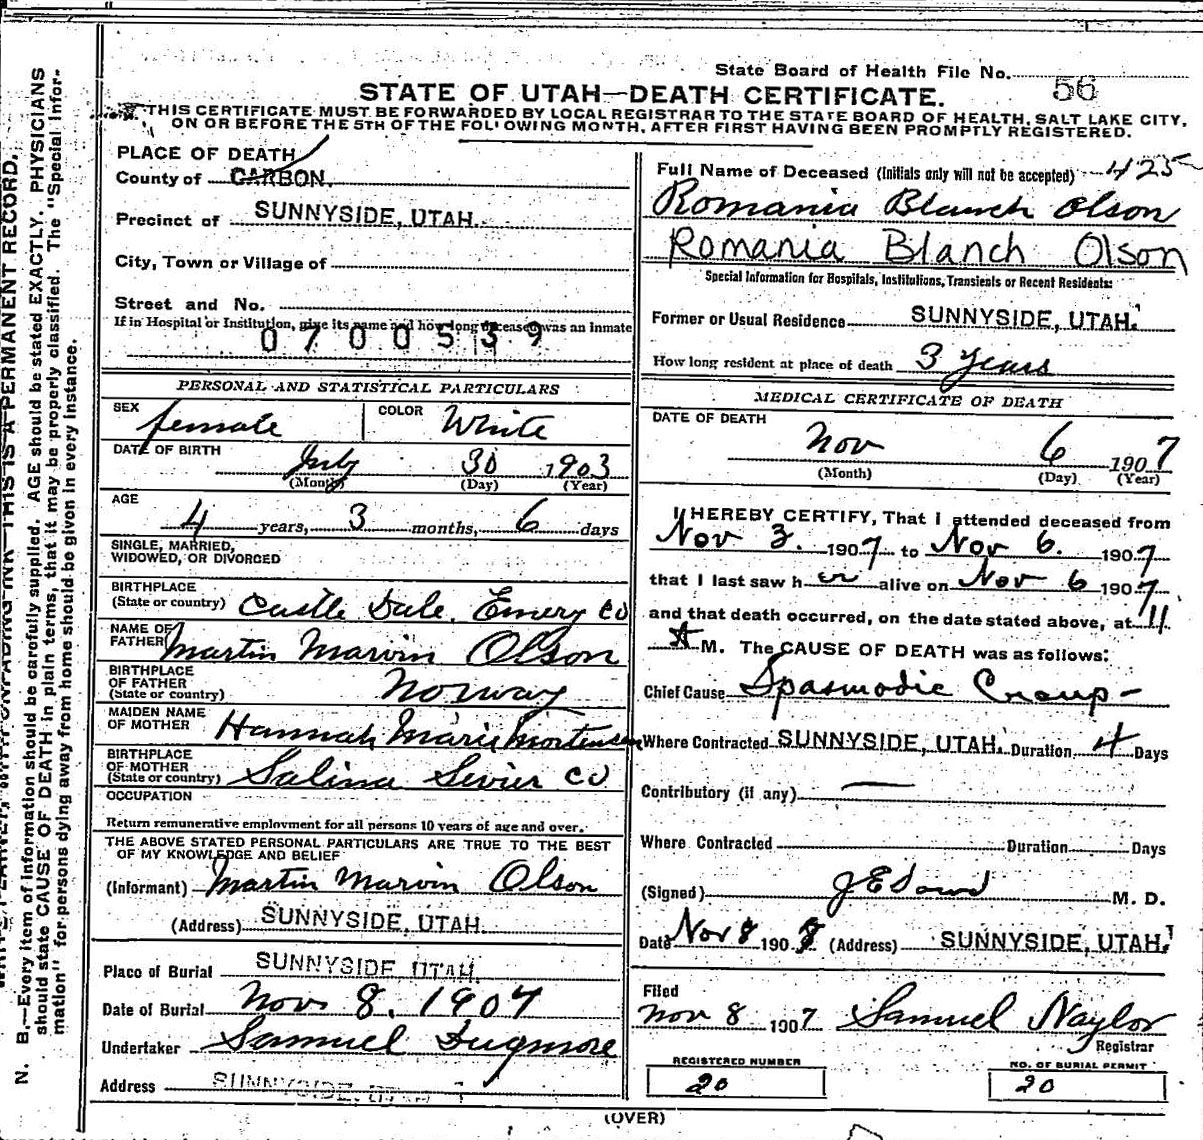 State Board of Health File No. 56
STATE OF UTAH—DEATH CERTIFICATE.
THIS CERTIFICATE MUST BE FORWARDED BY LOCAL REGISTRAR TO THE STATE BOARD OF HEALTH, SALT LAKE CITY,
ON OR BEFORE THE 5TH OF THE FOLLOWING MONTH, AFTER FIRST HAVING BEEN PROMPTLY REGISTERED.
N. B.—Every item of information should be carefully supplied. AGE should be stated EXACTLY. PHYSICIANS
should state CAUSE OF DEATH in plain terms, that it may be properly classified. The "Special Infor-
mation" for persons dying away from home should be given in every instance.
THIS IS A PERMANENT RECORD.
PLACE OF DEATH
County of CARBON.
Precinct of SUNNYSIDE, UTAH.
City, Town or Village of
Street and No.
If in Hospital or Institution, give its name and how long deceased was an inmate
0700539
PERSONAL AND STATISTICAL PARTICULARS
SEX female COLOR White
DATE OF BIRTH July 30 1903
(Month) (Day) (Year)
AGE 4 years, 3 months, 6 days
SINGLE, MARRIED,
WIDOWED, OR DIVORCED
BIRTHPLACE
(State or country) Castle Dale, Emery Co
NAME OF
FATHER Martin Marvin Olson
BIRTHPLACE
OF FATHER
(State or country) Norway
MAIDEN NAME
OF MOTHER Hannah Marie Mortensen
BIRTHPLACE
OF MOTHER
(State or country) Salina Sevier Co
OCCUPATION
Return remunerative employment for all persons 10 years of age and over.
THE ABOVE STATED PERSONAL PARTICULARS ARE TRUE TO THE BEST
OF MY KNOWLEDGE AND BELIEF
(Informant) Martin Marvin Olson
(Address) SUNNYSIDE, UTAH.
Place of Burial SUNNYSIDE, UTAH.
Date of Burial Nov 8. 1907
Undertaker Samuel Dugmore
Address SUNNYSIDE, UTAH
Full Name of Deceased (Initials only will not be accepted) 425
Romania Blanch Olson
Romania Blanch Olson
Special Information for Hospitals, Institutions, Transients or Recent Residents:
Former or Usual Residence SUNNYSIDE, UTAH.
How long resident at place of death 3 years
MEDICAL CERTIFICATE OF DEATH
DATE OF DEATH
Nov 6 1907
(Month) (Day) (Year)
I HEREBY CERTIFY, That I attended deceased from
Nov 3. 1907 to Nov 6. 1907
that I last saw her alive on Nov 6 1907
and that death occurred, on the date stated above, at 11
A M. The CAUSE OF DEATH was as follows:
Chief Cause Spasmodic Croup-
Where Contracted SUNNYSIDE, UTAH. Duration 4 Days
Contributory (if any) —
Where Contracted Duration Days
(Signed) J E Dowd M. D.
Date Nov 8 190 (Address) SUNNYSIDE, UTAH.
Filed
Nov 8 1907 Samuel Naylor
Registrar
REGISTERED NUMBER NO. OF BURIAL PERMIT
20 20
(OVER)